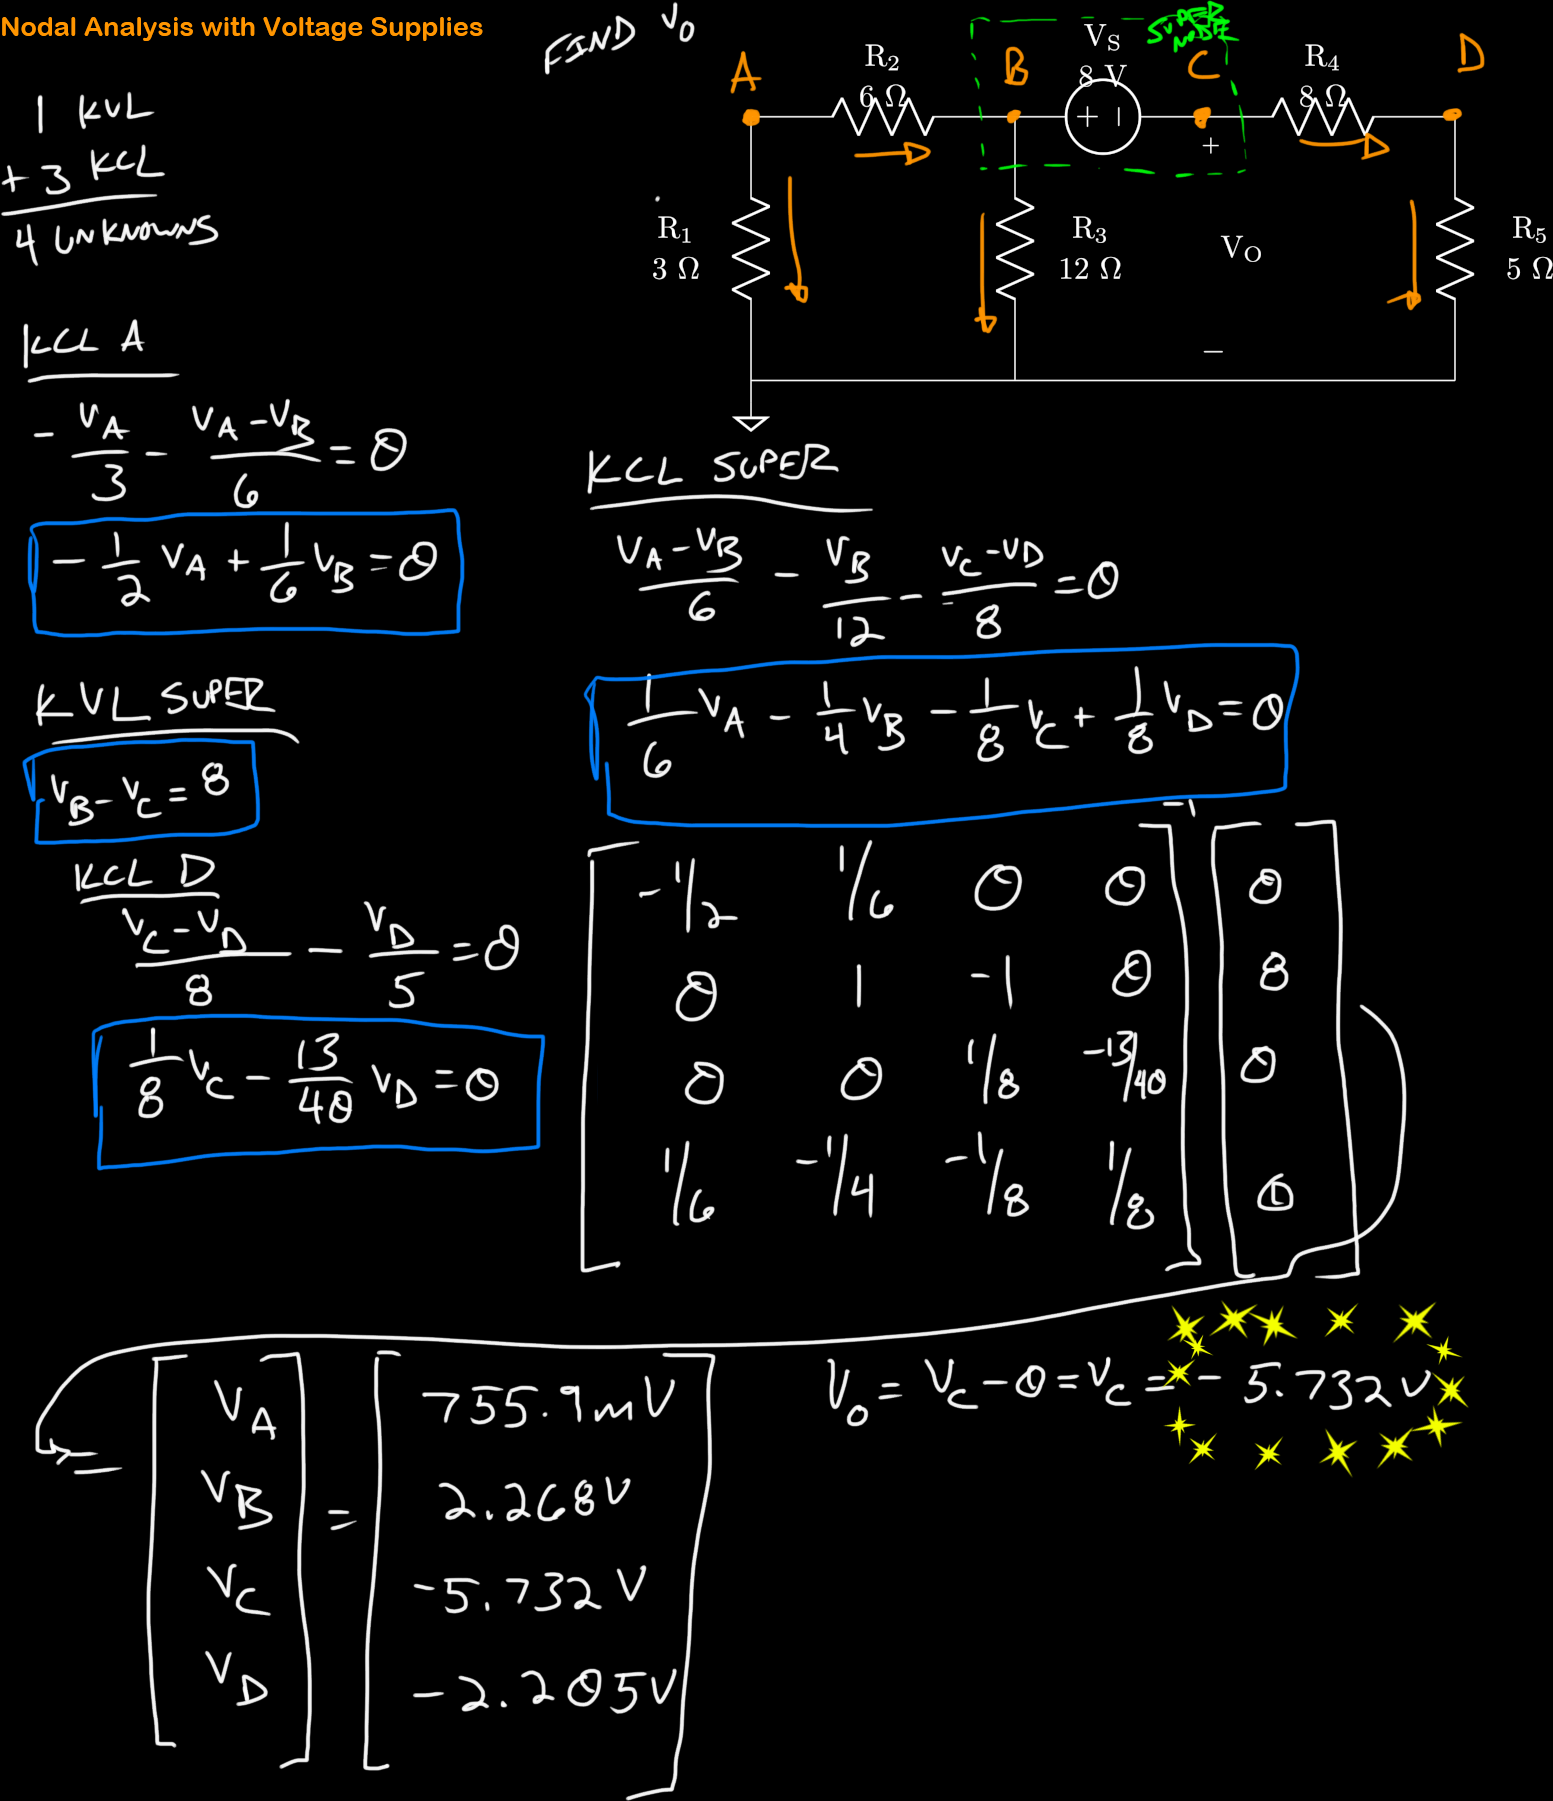 Nodal Analysis with Voltage Supplies
FIND V₀
1 KVL
+ 3 KCL
4 UNKNOWNS
A
R₂
6 Ω
B
V_S
8 V
SUPER
NODE
C
R₄
8 Ω
D
+ −
+
R₁
3 Ω
R₃
12 Ω
V_O
R₅
5 Ω
−
KCL A
− V_A/3 − (V_A − V_B)/6 = 0
− 1/2 V_A + 1/6 V_B = 0
KVL SUPER
V_B − V_C = 8
KCL D
(V_C − V_D)/8 − V_D/5 = 0
1/8 V_C − 13/40 V_D = 0
KCL SUPER
(V_A − V_B)/6 − V_B/12 − (V_C − V_D)/8 = 0
1/6 V_A − 1/4 V_B − 1/8 V_C + 1/8 V_D = 0
−1
−1/2 1/6 0 0 0
0 1 −1 0 8
0 0 1/8 −13/40 0
1/6 −1/4 −1/8 1/8 0
V_A 755.9mV
= V_B = 2.268V
V_C −5.732V
V_D −2.205V
V₀ = V_C − 0 = V_C = −5.732V